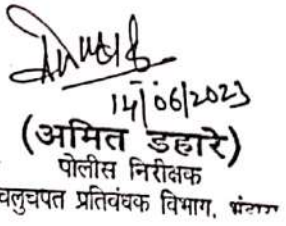 14/06/2023
(अमित डहारे)
पोलीस निरीक्षक
चलुचपत प्रतिबंधक विभाग, भंडारा